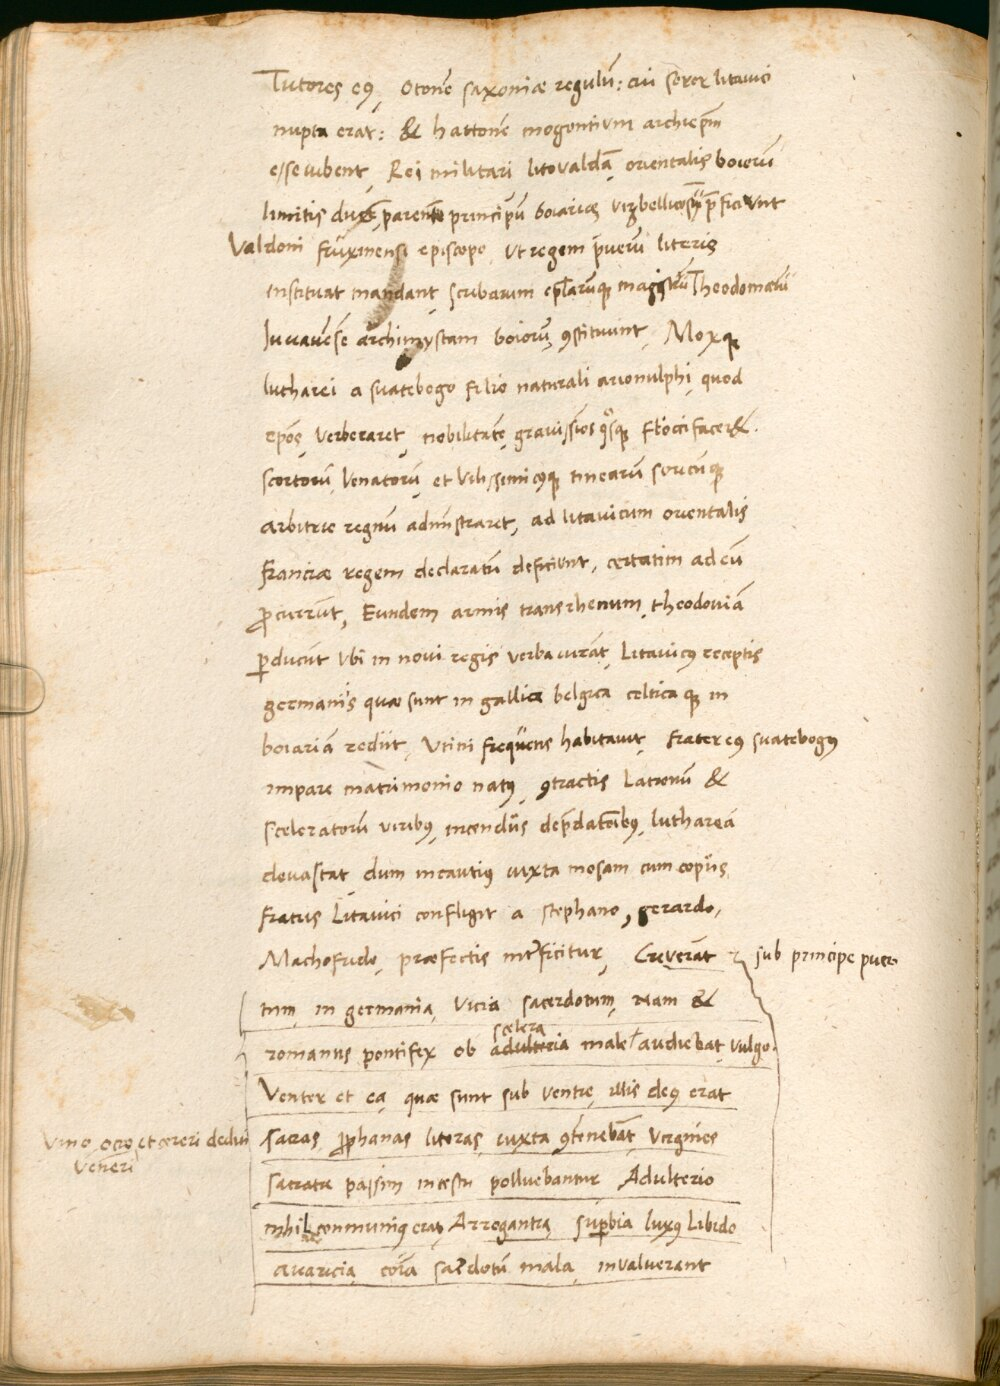 Tutores eꝰ, Otonē saxoniæ regulū: cui soror litauici
nupta erat: & hattonē mogontium archiep̄m
esse iubent, Rei militari litovaldā orientalis boiorū
limitis ducē, parentē principū boiariæ
Valdoni fruxinensi episcopo, ut regem puerū literis
instituat mandant, scribarum ep̄larūque magistrū Theodomarū
Iuuauēsē archimystam boiorū, ꝯstituunt, Moxque
lutharei a suatebogo filio naturali arionulphi, quod
ep̄os, verberaret, nobilitatē gravissīos flocci facer&.
scortorū, venatorū, et vilissimicꝰque tinearum soricūque
arbitrio regnū admīstraret, ad litauicum orientalis
franciæ regem declaratū deficiunt, certatim ad eū
ꝓcurrūt, Eundem armis transrhenum, theodoniā
ꝑducūt ubi in novi regis verba iurāt, Litauicꝰ receptis
germanis quæ sunt in gallica belgica celtica que in
boiariā rediit, Utini frequens habitauit, frater eꝰ suatebogꝰ
impare matrimonio natꝰ, ꝯtractis Latronū &
sceleratorū viribꝰ, incendiis dep̄datōibꝰ, luthareā
deuastat, dum incautiꝰ iuxta mosam cum copiis
fratris Litauici confligit a stephano, gerardo,
Machofrido, præfectis int̄ficitur, Creverāt sub principe puero
tum, in germania, vicia sacerdotum, nam &
romanus pontifex ob adulteria scelera male audiebat, vulgo.
Venter et ea, quæ sunt sub ventre, illis deꝰ erat
sacras, ꝓphanas literas, iuxta ꝯtēnebāt, virgines
Vino, ocio, et cæreri dediti
Veneri
sacratæ passim incestu polluebantur Adulterio
nihil communiꝰ erat, Arrogantia, suꝑbia luxꝰ Libido
avaricia, coīa sac̄dotū mala, invaluerant